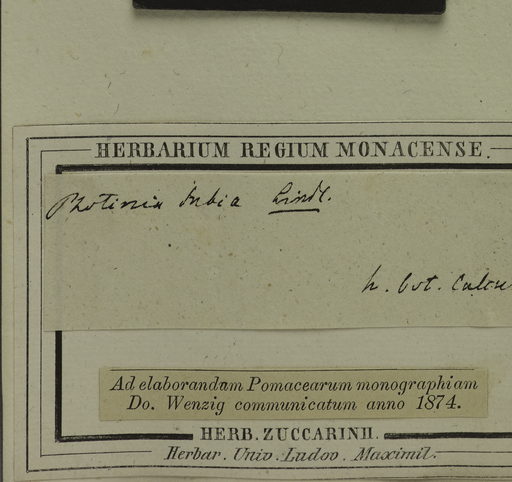 HERBARIUM REGIUM MONACENSE.
Photinia dubia Lindl.
h. bot. Calcu
Ad elaborandam Pomacearum monographiam
Do. Wenzig communicatum anno 1874.
HERB. ZUCCARINII.
Herbar. Univ. Ludov. Maximil.